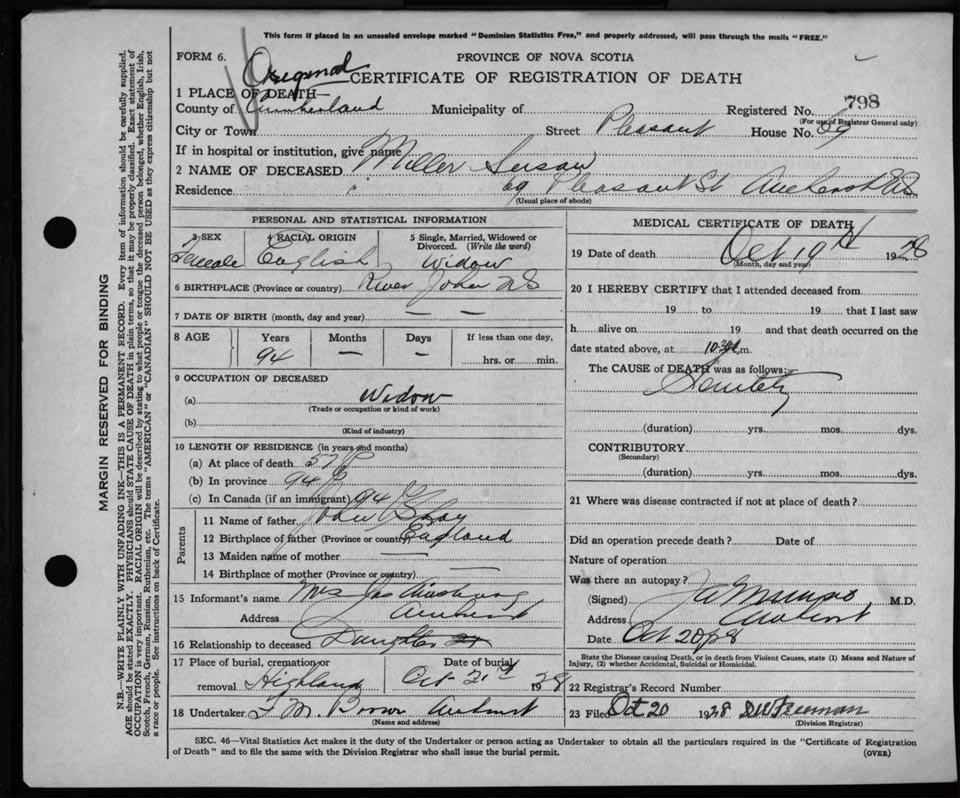 This form if placed in an unsealed envelope marked "Dominion Statistics Free," and properly addressed, will pass through the mails "FREE."
FORM 6.
PROVINCE OF NOVA SCOTIA
Original
CERTIFICATE OF REGISTRATION OF DEATH
1 PLACE OF DEATH—
County of Cumberland Municipality of Registered No. 798
(For use of Registrar General only)
City or Town Street Pleasant House No. 69
If in hospital or institution, give name
2 NAME OF DECEASED Miller Susan
Residence 69 Pleasant St Amherst NS
(Usual place of abode)
PERSONAL AND STATISTICAL INFORMATION
3 SEX 4 RACIAL ORIGIN 5 Single, Married, Widowed or Divorced. (Write the word)
Female English Widow
6 BIRTHPLACE (Province or country) River John NS
7 DATE OF BIRTH (month, day and year) — —
8 AGE Years Months Days If less than one day,
94 — — hrs. or min.
9 OCCUPATION OF DECEASED
(a) Widow
(Trade or occupation or kind of work)
(b)
(Kind of industry)
10 LENGTH OF RESIDENCE (in years and months)
(a) At place of death 57
(b) In province 94
(c) In Canada (if an immigrant) 94
Parents
11 Name of father John
12 Birthplace of father (Province or country) England
13 Maiden name of mother —
14 Birthplace of mother (Province or country) —
15 Informant's name Mrs Jas
Address Amherst
16 Relationship to deceased Daughter
17 Place of burial, cremation or removal Highland Date of burial Oct 21 1928
18 Undertaker Amherst
(Name and address)
MEDICAL CERTIFICATE OF DEATH
19 Date of death Oct 19th 1928
(Month, day and year)
20 I HEREBY CERTIFY that I attended deceased from
19 to 19 that I last saw
h alive on 19 and that death occurred on
date stated above, at 10 m.
The CAUSE of DEATH was as follows:
Senility
(duration) yrs. mos. dys.
CONTRIBUTORY
(Secondary)
(duration) yrs. mos. dys.
21 Where was disease contracted if not at place of death?
Did an operation precede death? Date of
Nature of operation
Was there an autopsy?
(Signed) M.D.
Address Amherst
Date Oct 20/28
State the Disease causing Death, or in death from Violent Causes, state (1) Means and Nature of
Injury, (2) whether Accidental, Suicidal or Homicidal.
22 Registrar's Record Number
23 Filed Oct 20 1928 DW Freeman
(Division Registrar)
SEC. 46—Vital Statistics Act makes it the duty of the Undertaker or person acting as Undertaker to obtain all the particulars required in the "Certificate of Registration
of Death" and to file the same with the Division Registrar who shall issue the burial permit.
(OVER)
MARGIN RESERVED FOR BINDING
N.B.—WRITE PLAINLY WITH UNFADING INK—THIS IS A PERMANENT RECORD. Every item of information should be carefully supplied.
AGE should be stated EXACTLY. PHYSICIANS should STATE CAUSE OF DEATH in plain terms, so that it may be properly classified. Exact statement of
OCCUPATION is very important. RACIAL ORIGIN will be described by stating to what people or tongue the deceased person belonged, whether English, Irish,
Scotch, French, German, Russian, Ruthenian, etc. The terms "AMERICAN" or "CANADIAN" SHOULD NOT BE USED as they express citizenship but not
a race or people. See instructions on back of Certificate.